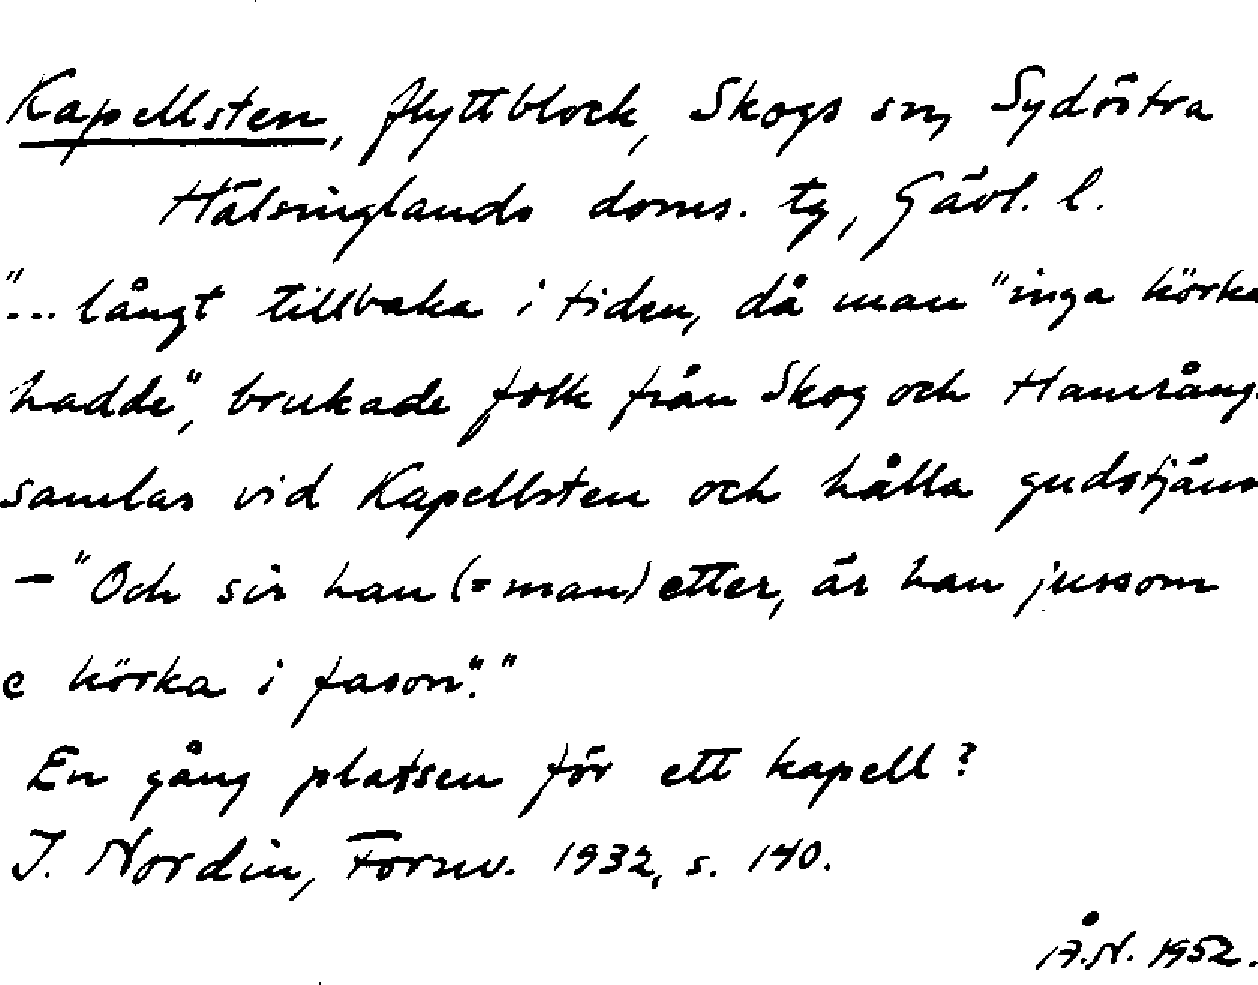 Kapellsten, flyttblock, Skogs sn, Sydöstra
Hälsinglands doms. tg, Gävl. l.
"... långt tillbaka i tiden, då man "inga körka
hadde", brukade folk från Skog och Hamrång
samlas vid Kapellsten och hålla gudstjäns
- "Och sir han (= man) etter, är han jussom
e körka i fason"."
En gång platsen för ett kapell?
J. Nordin, Fornv. 1932, s. 140.
Å.N. 1952.